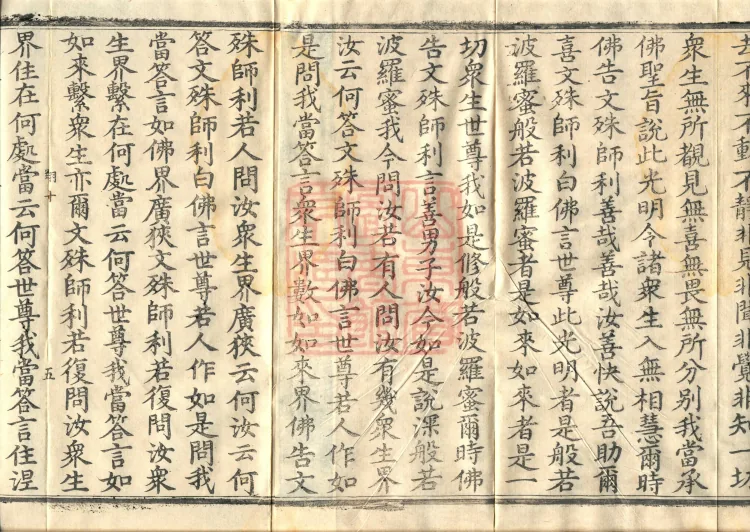 去不來不動不靜非見非聞非覺非知一切
衆生無所觀見無喜無畏無所分别我當承
佛聖旨說此光明令諸衆生入無相慧爾時
佛告文殊師利善哉善哉汝善快說吾助爾
喜文殊師利白佛言世尊此光明者是般若
波羅蜜般若波羅蜜者是如來如來者是一
切衆生世尊我如是修般若波羅蜜爾時佛
告文殊師利言善男子汝今如是說深般若
波羅蜜我今問汝若有人問汝有幾衆生界
汝云何答文殊師利白佛言世尊若人作如
是問我當答言衆生界數如如來界佛告文
殊師利若人問汝衆生界廣狹云何汝云何
答文殊師利白佛言世尊若人作如是問我
當答言如佛界廣狹文殊師利若復問汝衆
生界繫在何處當云何答世尊我當答言如
如來繫衆生亦爾文殊師利若復問汝衆生
翔十 五
界住在何處當云何答世尊我當答言住涅